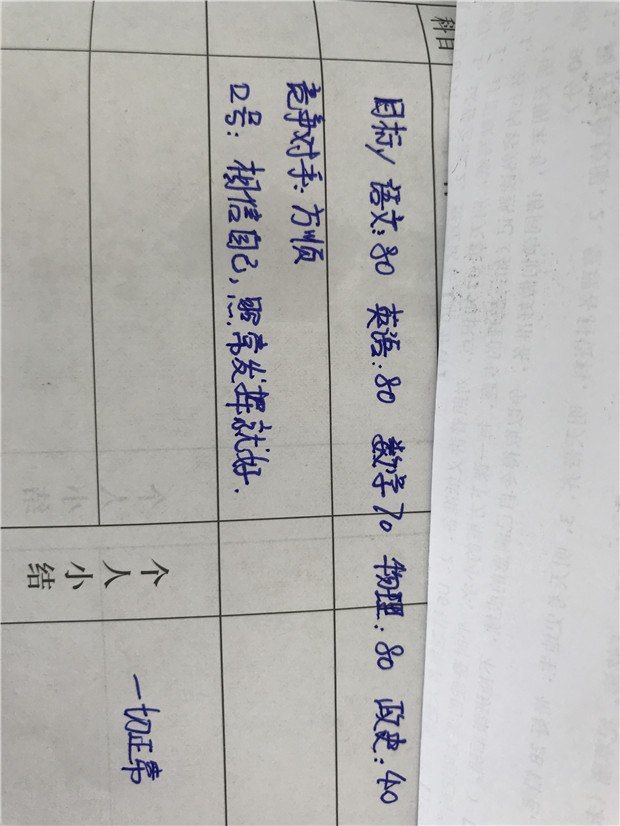 科目
目标, 语文:80 英语:80 数学70 物理:80 政史:40
竞争对手:方顺
口号: 相信自己,照常发挥就好.
个人小结
一切正常